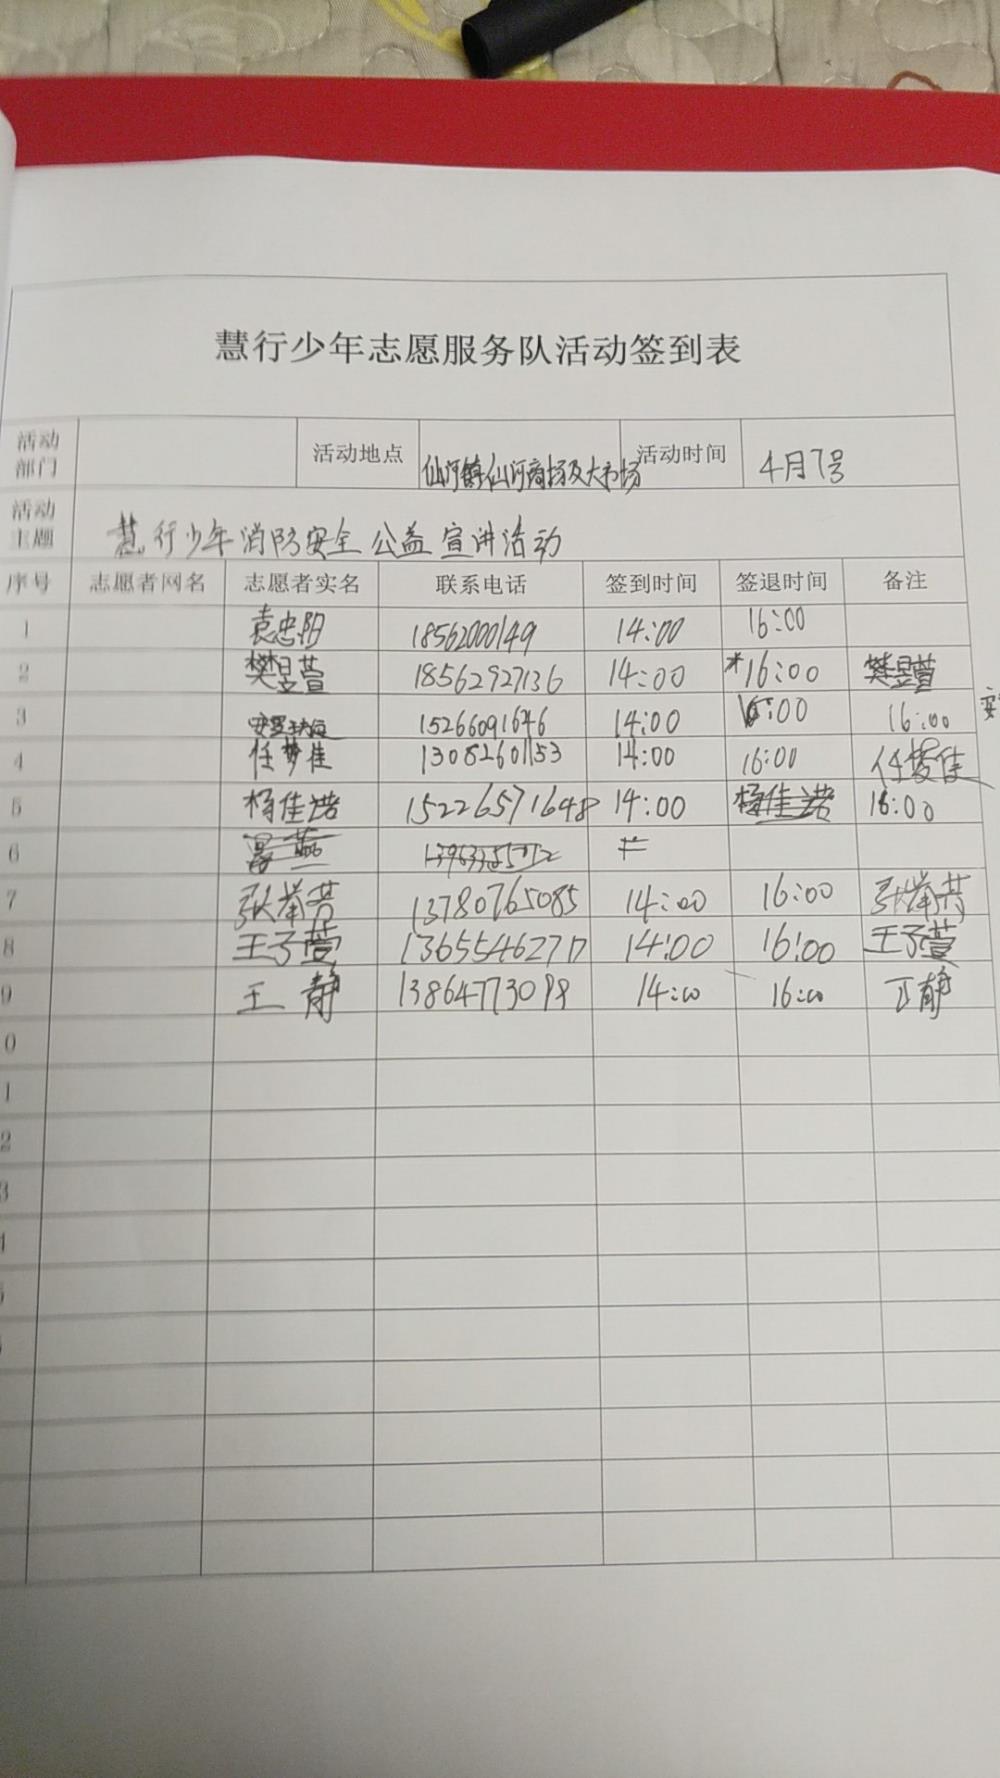 慧行少年志愿服务队活动签到表
活动部门 活动地点 仙河镇仙河商场及大市场 活动时间 4月7号
活动主题 慧行少年消防安全公益宣讲活动
序号 志愿者网名 志愿者实名 联系电话 签到时间 签退时间 备注
1 袁忠阳 18562000149 14:00 16:00
2 樊昱萱 18562927136 14:00 16:00 樊昱萱
3 15266091646 14:00 16:00 16:00
4 任梦佳 13082601153 14:00 16:00 任梦佳
5 杨佳诺 15226571648 14:00 杨佳诺 16:00
6
7 张芳 13780765085 14:00 16:00 张芳
8 王子萱 13655462717 14:00 16:00 王子萱
9 王静 13864773098 14:00 16:00 王静
0
1
2
3